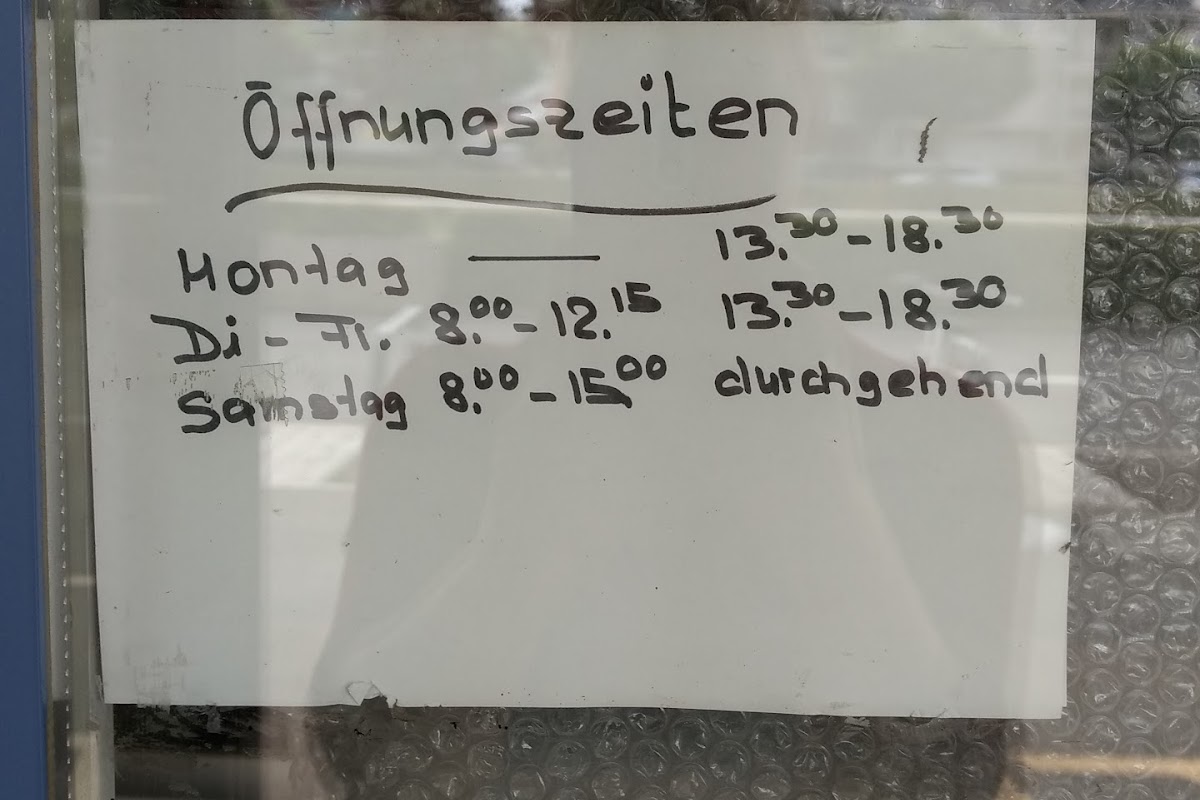 Öffnungszeiten
Montag —— 13.30 - 18.30
Di - Fr. 8.00 - 12.15 13.30 - 18.30
Samstag 8.00 - 15.00 durchgehend